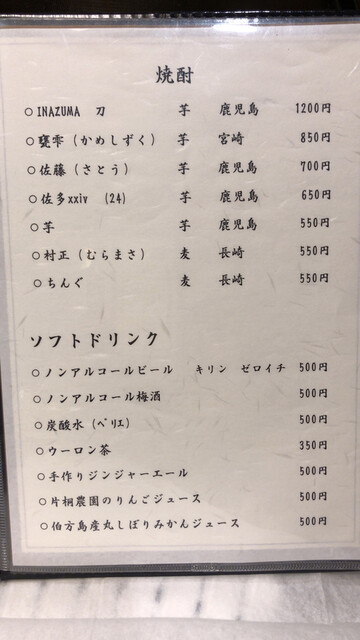 焼酎
○INAZUMA 刀 芋 鹿児島 1200円
○甕雫（かめしずく） 芋 宮崎 850円
○佐藤（さとう） 芋 鹿児島 700円
○佐多xxiv (24) 芋 鹿児島 650円
○芋 芋 鹿児島 550円
○村正（むらまさ） 麦 長崎 550円
○ちんぐ 麦 長崎 550円
ソフトドリンク
○ノンアルコールビール キリン ゼロイチ 500円
○ノンアルコール梅酒 500円
○炭酸水（ペリエ） 500円
○ウーロン茶 350円
○手作りジンジャーエール 500円
○片桐農園のりんごジュース 500円
○伯方島産丸しぼりみかんジュース 500円